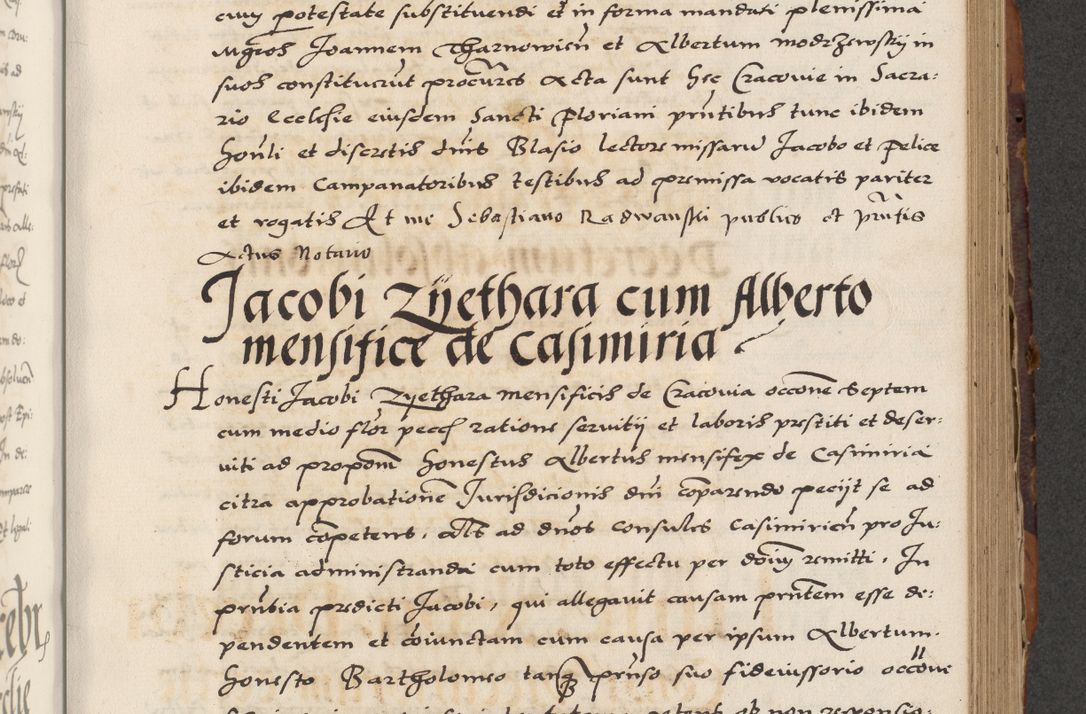 cum potestate substituendi et in forma mandati plenissima
Mgros Joannem Tharnowien et Albertum modrzewskÿ in
suos constituerut procures Acta sunt hęc Cracovie in Sacra:
rio Ecclesie eiusdem Sancti Floriani pntibus tunc ibidem
honli et discretis dnis Blasio lectore missaru Jacobo et Felice
ibidem Campanatoribus testibus ad premissa vocatis pariter
et rogatis Et me Sebastiano Radwanski publico et pntis
Actus Notario
Jacobi Zÿethara cum Alberto
mensifice de Casimiria
Honesti Jacobi Zyethara mensificis de Cracovia occone Septem
cum medio flor pecch ratione servitij et laboris prestiti et deser:
viti ad propom honestus Albertus mensifex de Casimiria
citra approbatione Jurisdicionis dni comparendo pecijt se ad
forum competens, als ad dnos consules Casimirien pro Ju:
sticia administranda cum toto effectu per doim remitti, In
pnbia predicti Jacobi, qui allegavit causam pntem esse de:
pendentem et coiunctam cum causa per ipsum Albertum.
Honesto Bartholomeo tanq pnso suo fideiussorio occone